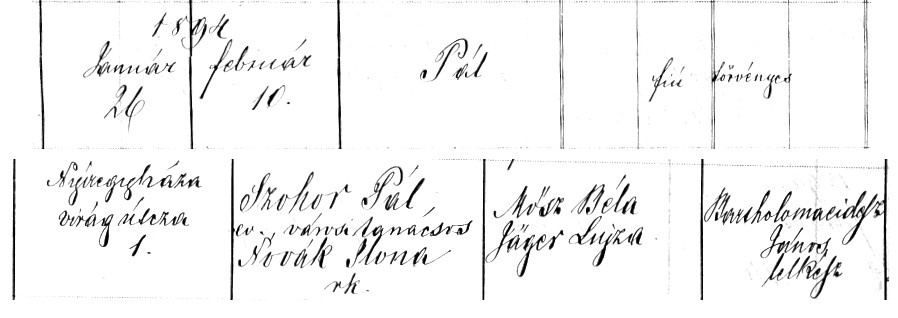 1894
Január február Pál fiú törvényes
26 10.
Nyíregyháza
virág útcza
1.
Szohor Pál
ev. városi tanácsos
Novák Ilona
rk.
Mősz Béla
Jäger Lujza
Bartholomaeidesz
János
lelkész